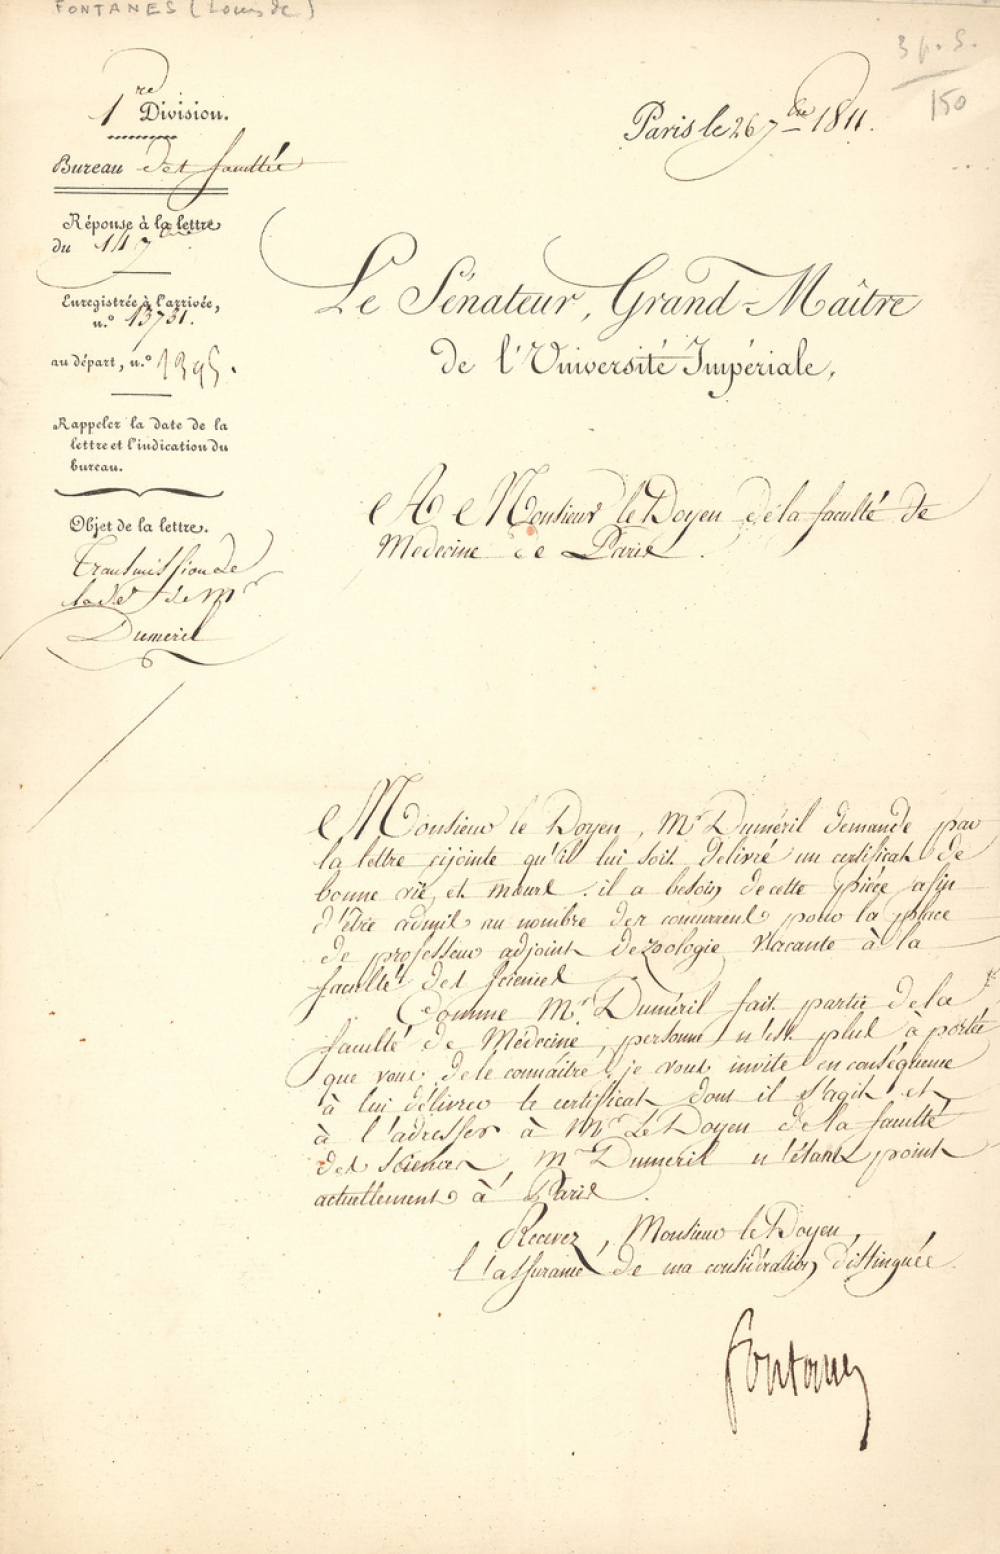 FONTANES (Louis de)
3 p. S.
150
1re Division.
Bureau des facultés
Réponse à la lettre
du 14 7bre
Enregistrée à l'arrivée,
n.º 13731.
au départ, n.º 1395.
Rappeler la date de la
lettre et l'indication du
bureau.
Objet de la lettre.
Transmission de
de Mr
Dumeril
Paris le 26 7bre 1811.
Le Sénateur, Grand-Maître
de l'Université Impériale,
A Monsieur le Doyen de la faculté de
Medecine de Paris.
Monsieur le Doyen, Mr Duméril demande par
la lettre cijointe qu'il lui soit delivré un certificat de
bonne vie, et mœurs. il a besoin de cette pièce afin
d'être admis au nombre des concurrents pour la place
de professeur adjoint de zoologie vacante à la
faculté des sciences
Comme Mr Duméril fait partie de la
faculté de Médecine, personne n'est plus à portée
que vous de le connaître, je vous invite en conséquence
à lui délivrer le certificat dont il s'agit et
à l'adresser à Mr Le Doyen de la faculté
des sciences, Mr Dumeril n'étant point
actuellement à Paris.
Recevez, Monsieur le Doyen,
l'assurance de ma considération distinguée.
Fontanes